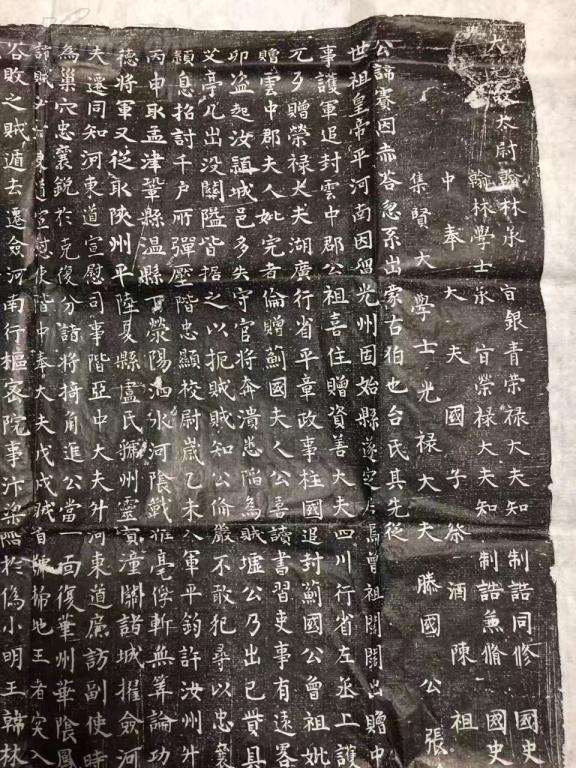 大 太尉翰林承 旨銀青榮祿大夫知 制誥同脩 國史
翰林學士承 旨榮祿大夫知 制誥兼脩 國史
中 奉 大 夫 國 子 祭 酒 陳 祖
集 賢 大 學 士 光 祿 大 夫 滕 國 公 張
公諱賽因赤荅忽系出蒙古伯也台氏其先從
世祖皇帝平河南因留光州固始縣遂定 焉曾祖闊闊出贈中
事護軍追封雲中郡公祖喜住贈資善大夫四川行省左丞上護
兀乃贈榮祿大夫湖廣行省平章政事柱國追封薊國公曾祖妣
贈雲中郡夫人妣完者倫贈薊國夫人公喜讀書習吏事有遠畧
卯盜起汝潁城邑多失守官將奔潰悉陷為賊墟公乃出己貲具
艾亭凡出没關隘皆据之以扼賊賊知公俻嚴不敢犯尋以忠襄
潁息招討千户所彈壓階忠顯校尉歲乙未 軍平鈞許汝州升
丙申取孟津鞏縣温縣 滎陽泗水河陰戰 亳俘斬無筭論功
德將軍又從取陝州平陸夏縣盧氏虢州靈寳潼關諸城擢僉河
夫遷同知河東道宣慰司事階亞中大夫升河東道廉訪副使時
為巢穴忠襄銳於克復分諸將掎角進公當一面復華州華陰鳳
諸賊 河東道宣慰使階中奉大夫戊戌賊首 掃地王者突入
谷敗之賊遁去遷僉河南行樞密院事汴梁陷於偽小明王韓林